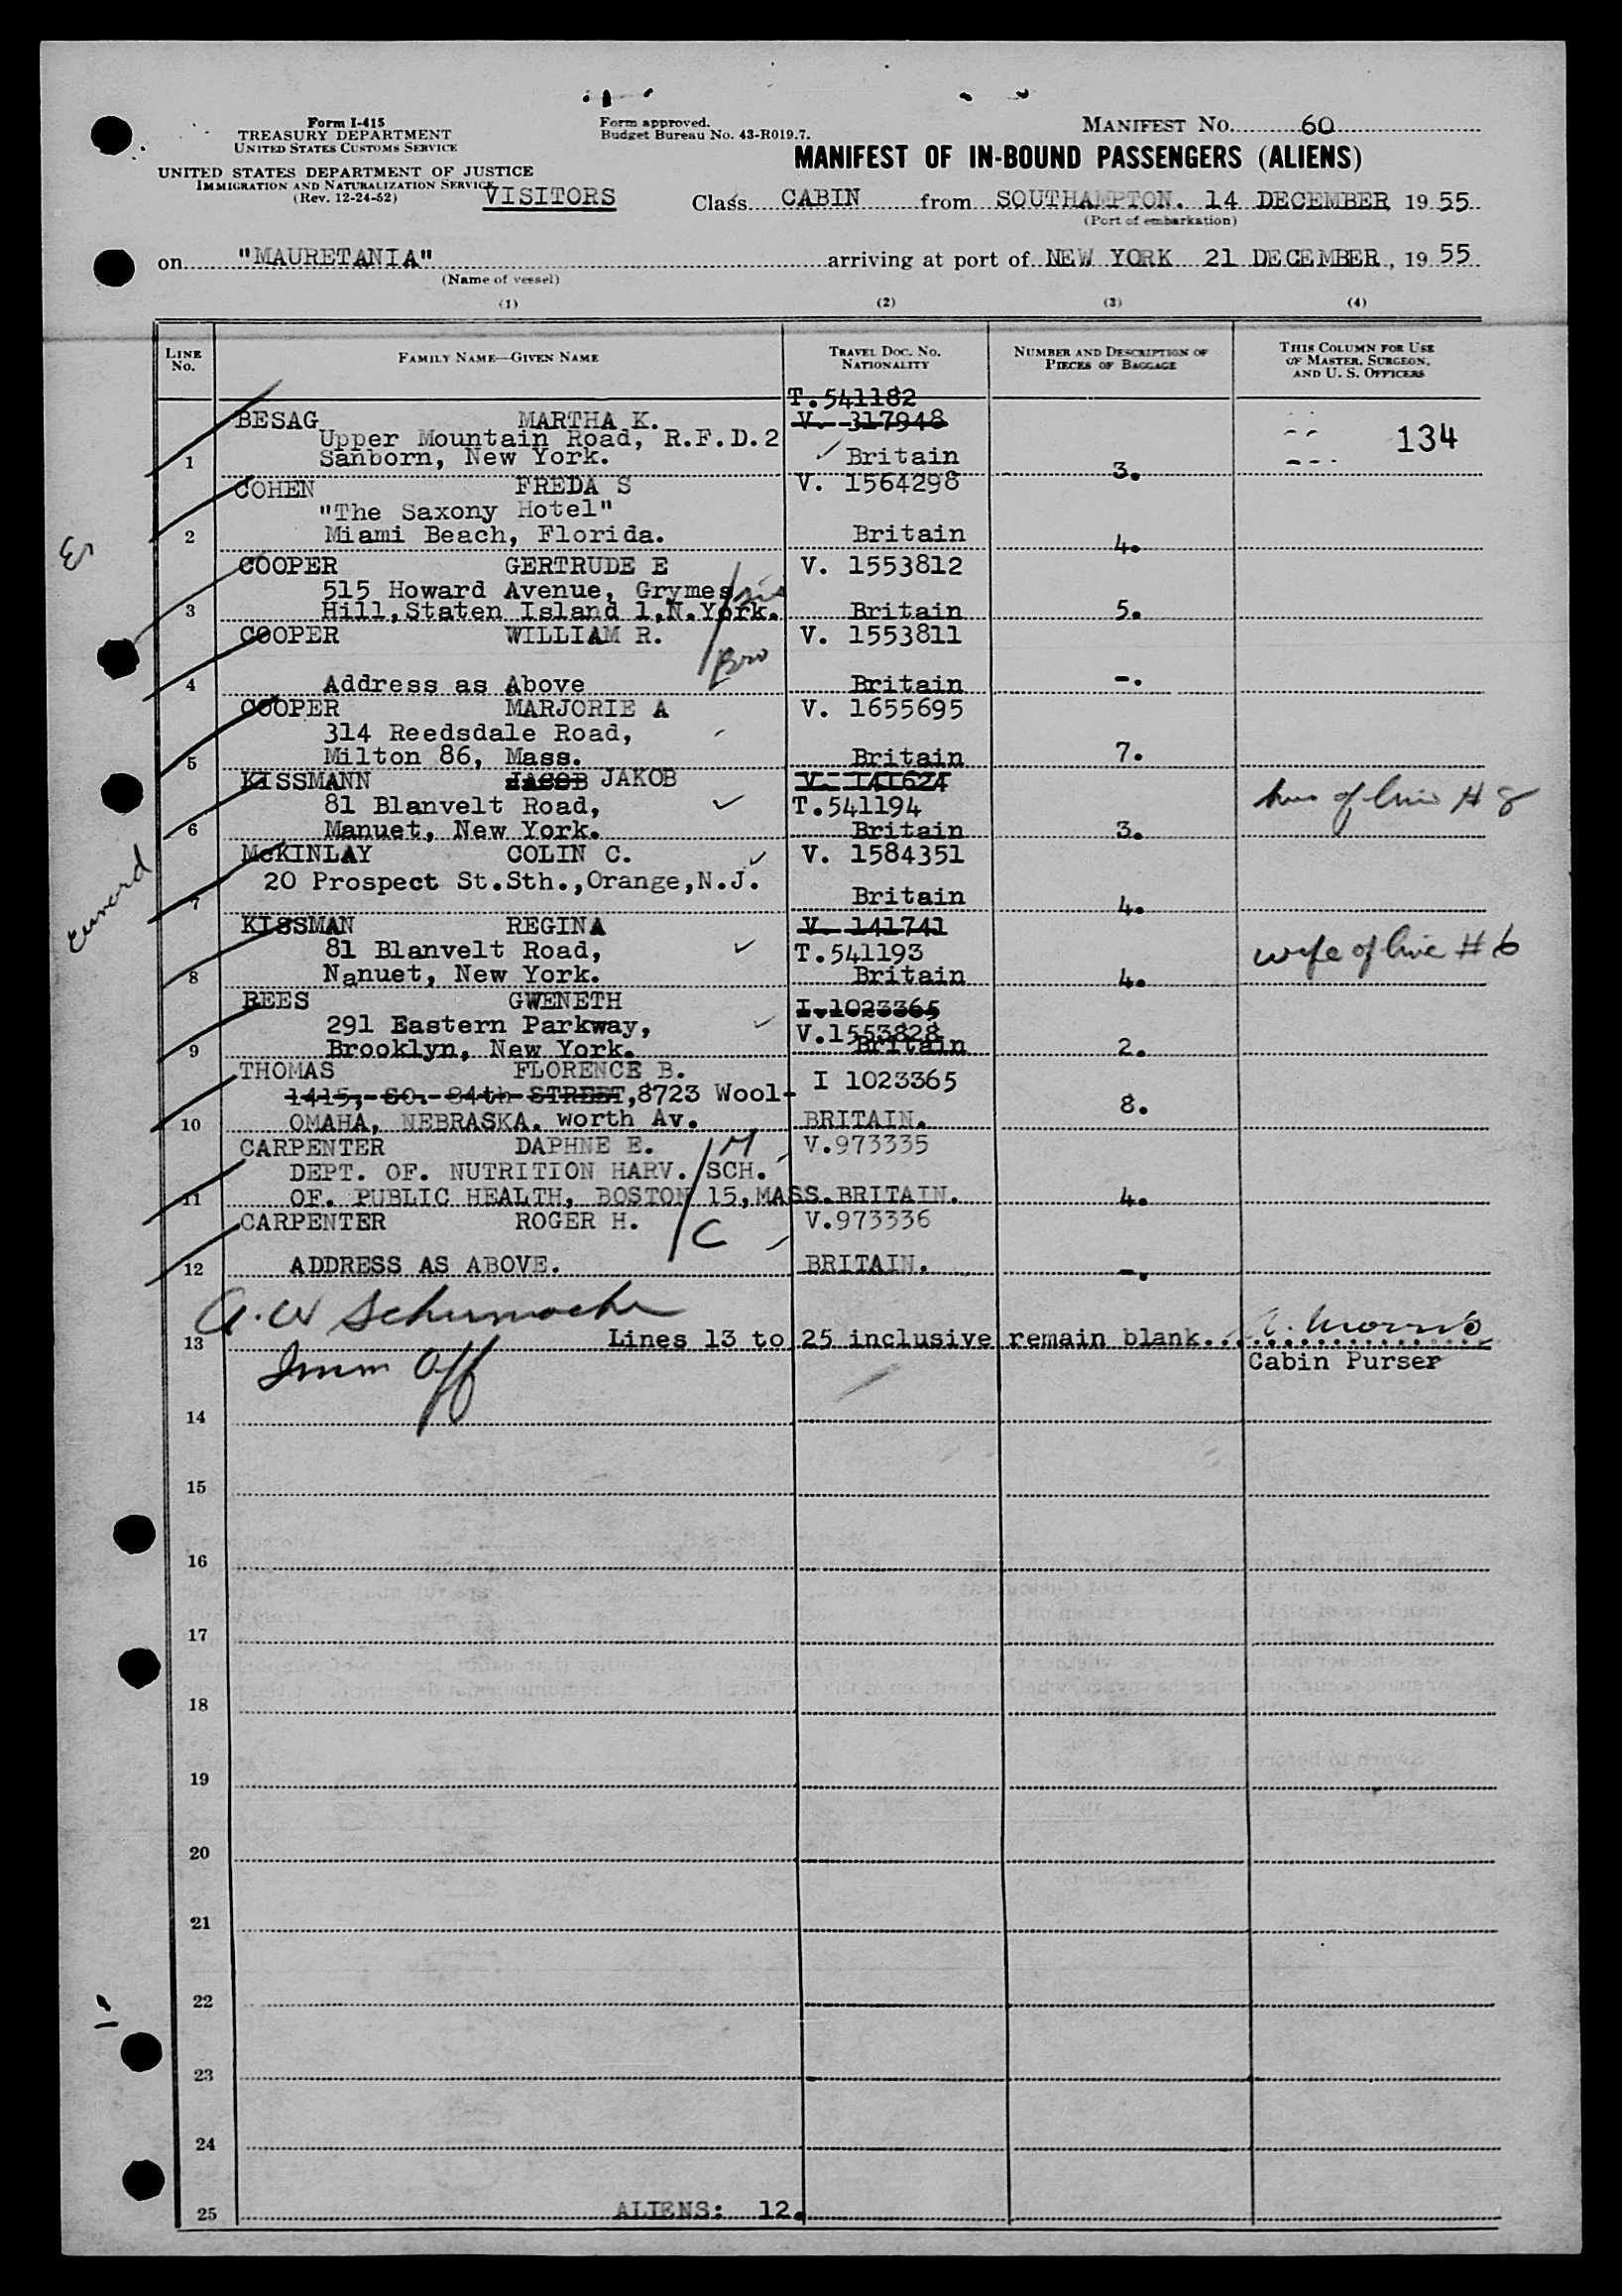 Form I-415
TREASURY DEPARTMENT
UNITED STATES CUSTOMS SERVICE
UNITED STATES DEPARTMENT OF JUSTICE
IMMIGRATION AND NATURALIZATION SERVICE
(Rev. 12-24-52)
VISITORS
Form approved.
Budget Bureau No. 43-R019.7.
MANIFEST NO. 60
MANIFEST OF IN-BOUND PASSENGERS (ALIENS)
Class CABIN from SOUTHAMPTON. 14 DECEMBER 19 55
(Port of embarkation)
on "MAURETANIA" arriving at port of NEW YORK 21 DECEMBER, 19 55
(Name of vessel)
(1) (2) (3) (4)
LINE NO. FAMILY NAME—GIVEN NAME TRAVEL DOC. NO. NATIONALITY NUMBER AND DESCRIPTION OF PIECES OF BAGGAGE THIS COLUMN FOR USE OF MASTER, SURGEON, AND U. S. OFFICERS
T.541182
BESAG MARTHA K. V. 317948
Upper Mountain Road, R.F.D.2 134
1 Sanborn, New York. Britain 3.
COHEN FREDA S V. 1564298
"The Saxony Hotel"
2 Miami Beach, Florida. Britain 4.
COOPER GERTRUDE E V. 1553812
515 Howard Avenue, Grymes sis
3 Hill,Staten Island 1,N.York. Britain 5.
COOPER WILLIAM R. V. 1553811
Bro
4 Address as Above Britain -.
COOPER MARJORIE A V. 1655695
314 Reedsdale Road,
5 Milton 86, Mass. Britain 7.
KISSMANN JACOB JAKOB V. 141624
81 Blanvelt Road, T.541194 hus of line # 8
6 Manuet, New York. Britain 3.
McKINLAY COLIN C. V. 1584351
20 Prospect St.Sth.,Orange,N.J.
7 Britain 4.
KISSMAN REGINA V. 141741
81 Blanvelt Road, T.541193 wife of line # 6
8 Nanuet, New York. Britain 4.
REES GWENETH I.1023365
291 Eastern Parkway, V.1553828
9 Brooklyn, New York. Britain 2.
THOMAS FLORENCE B. I 1023365
1415, SO. 84th STREET,8723 Wool- 8.
10 OMAHA, NEBRASKA. worth Av. BRITAIN.
CARPENTER DAPHNE E. M V.973335
DEPT. OF. NUTRITION HARV. SCH.
11 OF. PUBLIC HEALTH, BOSTON 15,MASS.BRITAIN. 4.
CARPENTER ROGER H. C V.973336
12 ADDRESS AS ABOVE. BRITAIN. -.
A.W Schumacher
13 Lines 13 to 25 inclusive remain blank..
Imm Off Cabin Purser
14
15
16
17
18
19
20
21
22
23
24
25 ALIENS: 12.